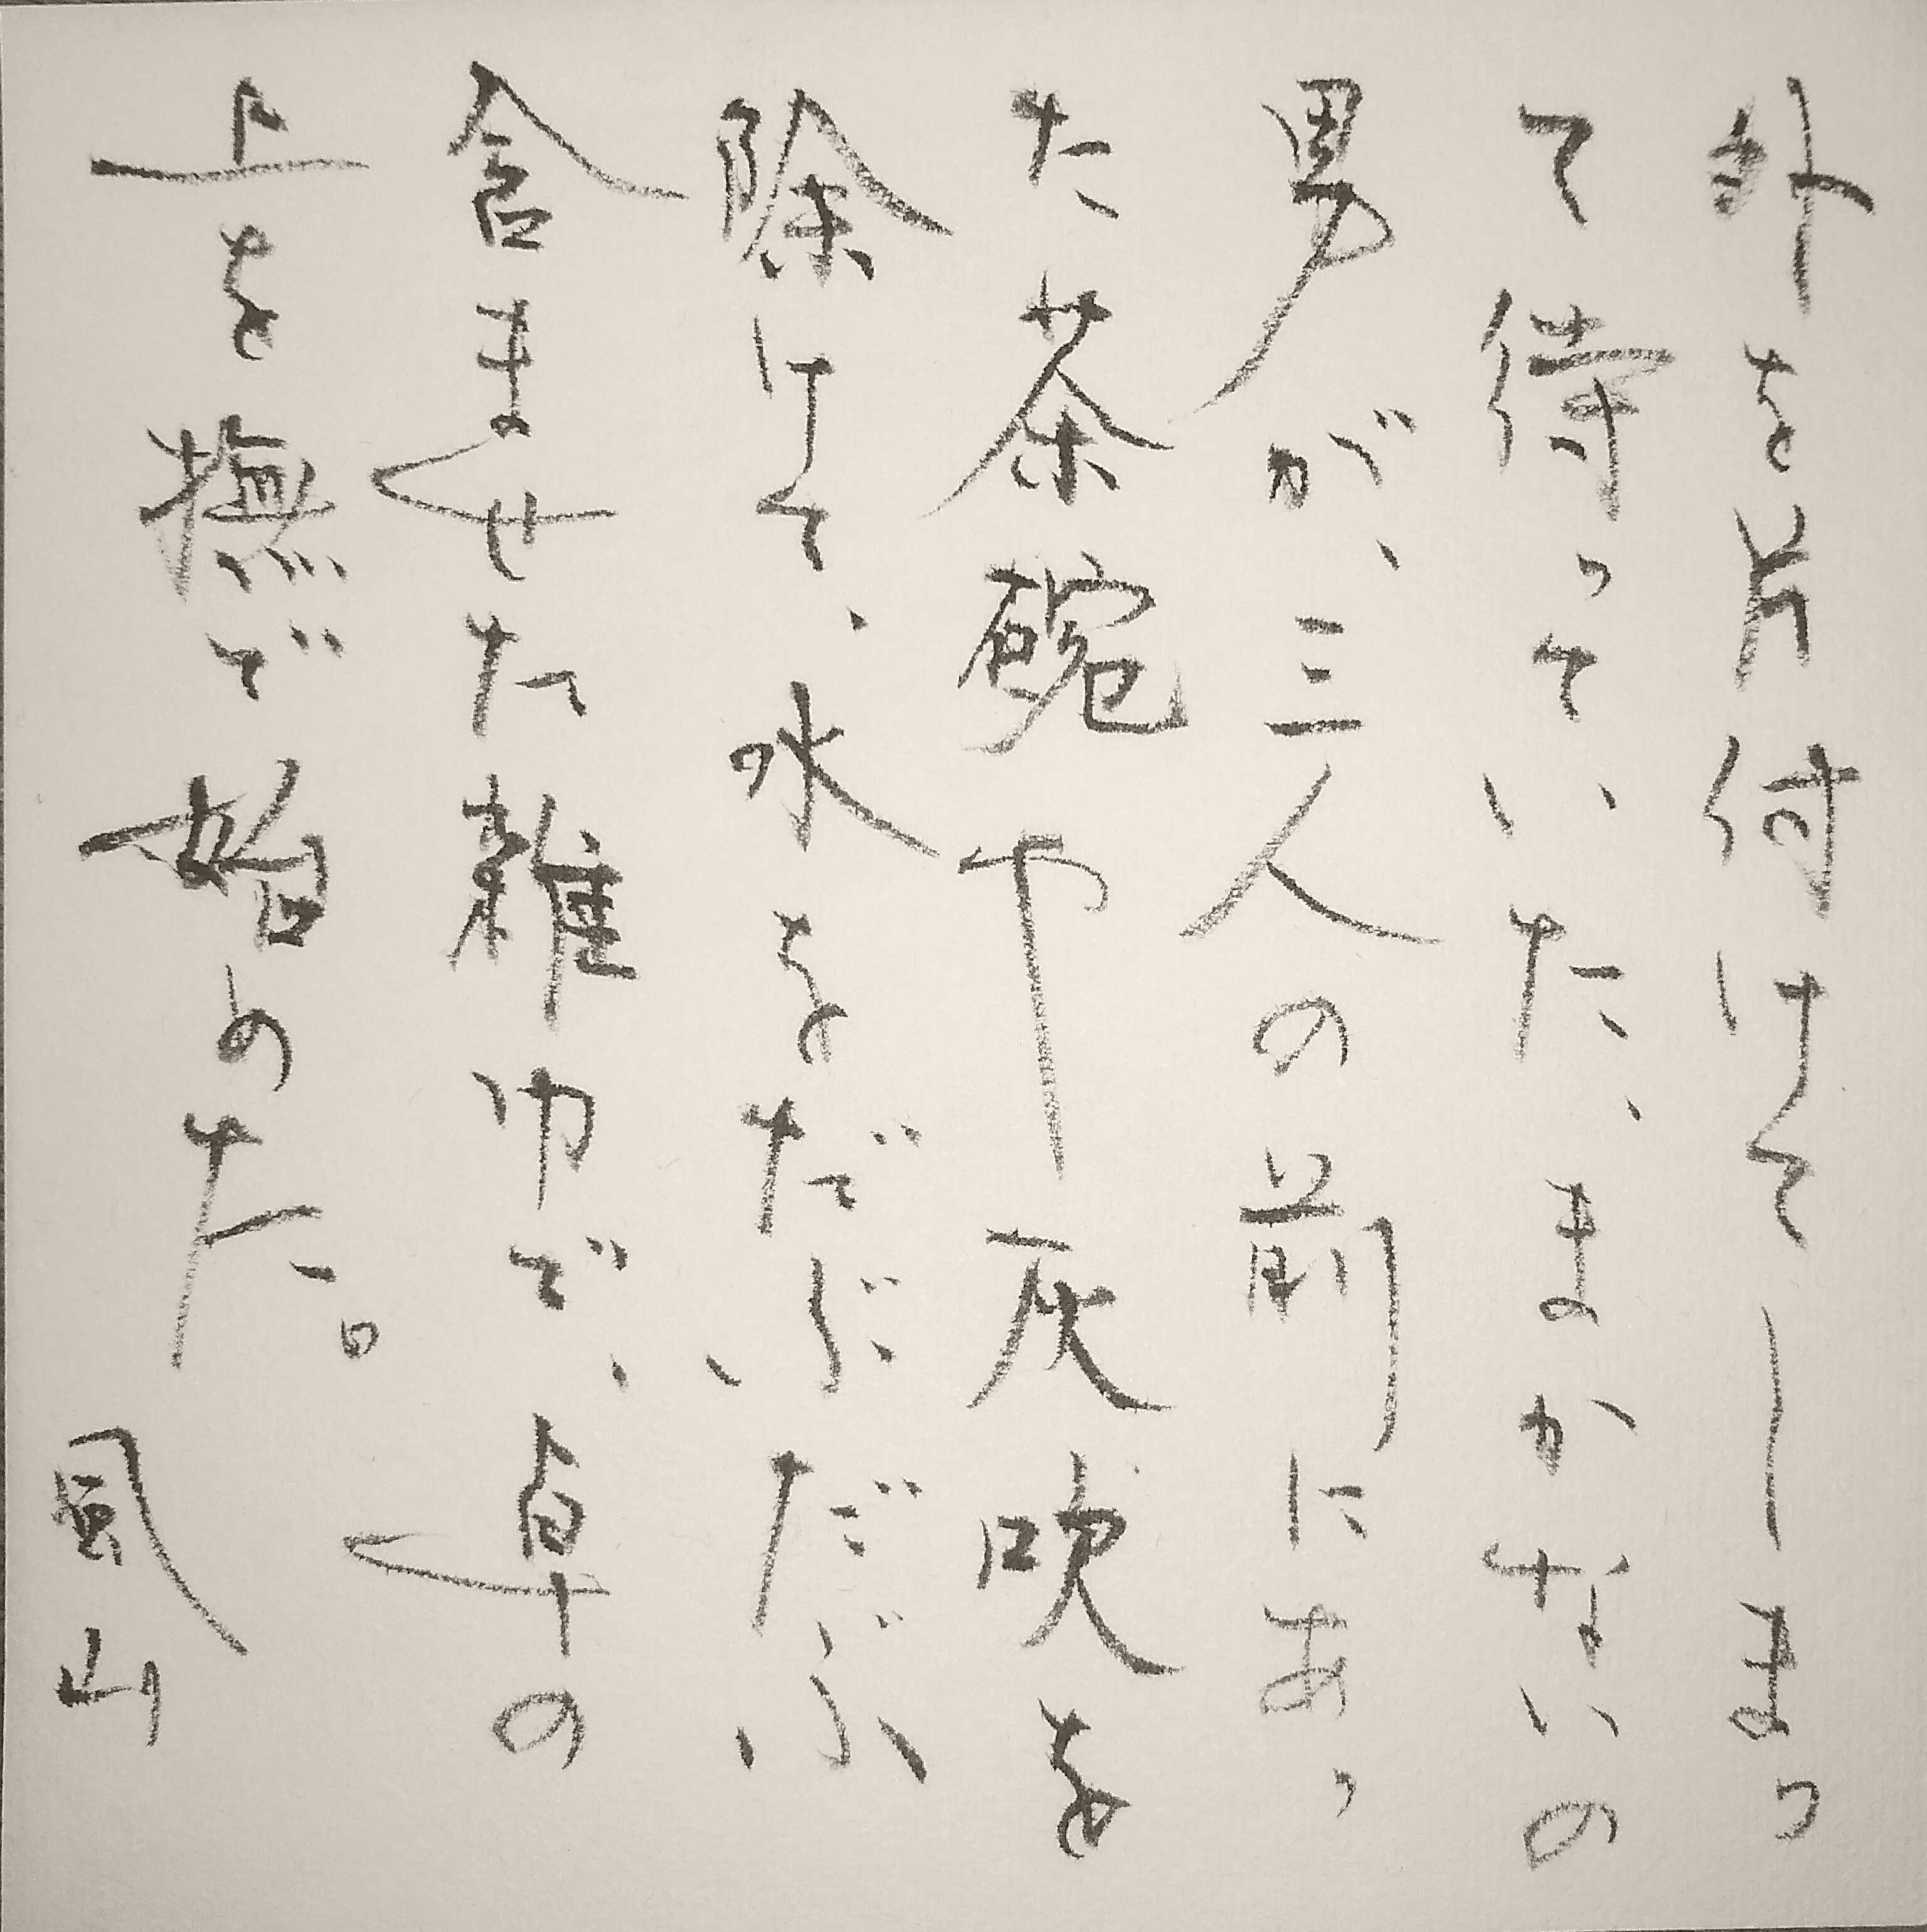 外を片付けてしまっ
て待っていた、まかないの
男が、三人の前にあっ
た茶碗や灰吹を
除けて、水をだぶだぶ
含ませた雑巾で、卓の
上を撫で始めた。
風山